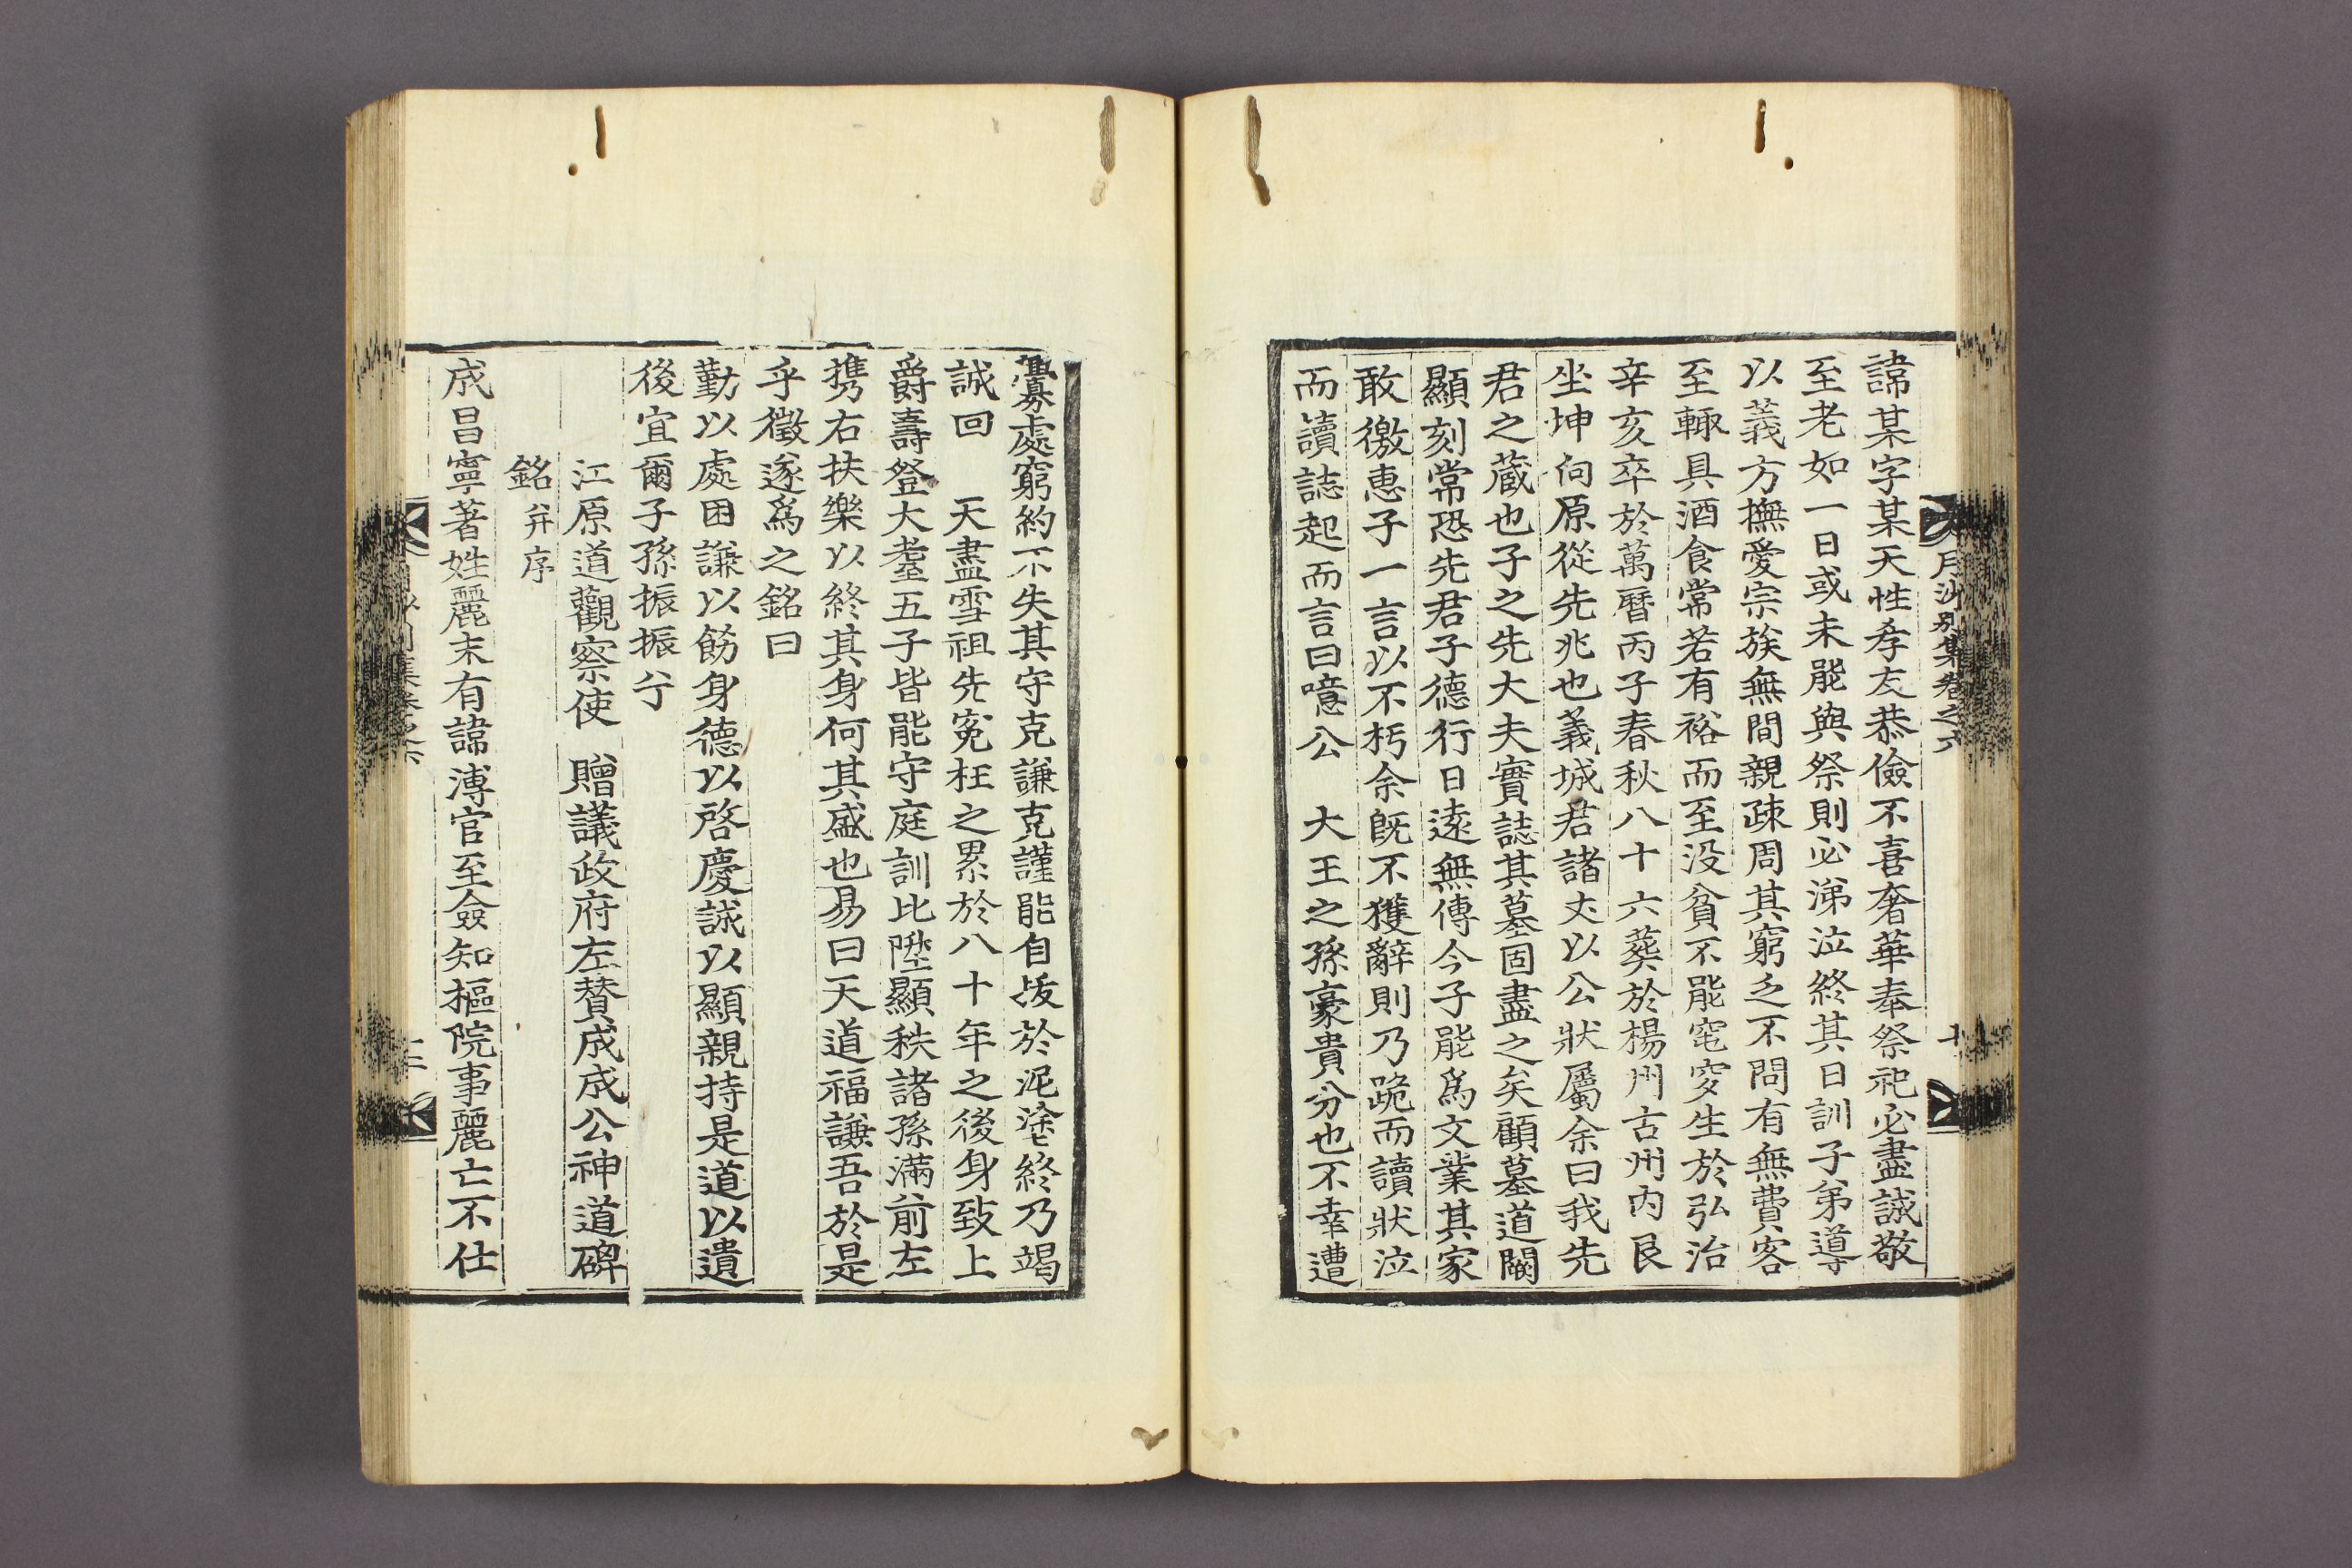 月沙別集卷之六
諱某字某天性孝友恭儉不喜奢華奉祭祀必盡誠敬
至老如一日或未能與祭則必涕泣終其日訓子弟導
以義方撫愛宗族無間親疎周其窮乏不問有無費客
至輒具酒食常若有裕而至没貧不能窀穸生於弘治
辛亥卒於萬曆丙子春秋八十六葬於楊州古州內艮
坐坤向原從先兆也義城君諸丈以公狀屬余曰我先
君之蔵也子之先大夫實誌其墓固盡之矣顧墓道闕
顯刻常恐先君子德行日遠無傳今子能爲文業其家
敢徼惠子一言以不朽余旣不獲辭則乃跪而讀狀泣
而讀誌起而言曰噫公　大王之孫豪貴分也不幸遭
寡處窮約不失其守克謙克謹能自拔於泥塗終乃竭
誠回　天盡雪祖先寃枉之累於八十年之後身致上
爵壽登大耋五子皆能守庭訓比陞顯秩諸孫滿前左
携右扶樂以終其身何其盛也易曰天道福謙吾於是
乎徵遂爲之銘曰
勤以處困謙以飭身德以啓慶誠以顯親持是道以遺
後宜爾子孫振振兮
江原道觀察使　贈議政府左賛成成公神道碑
銘并序
成昌寧著姓麗末有諱溥官至僉知樞院事麗亡不仕